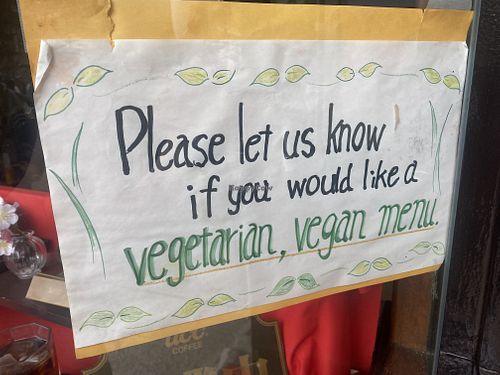 Please let us know
if you would like a
vegetarian, vegan menu.
COFFEE